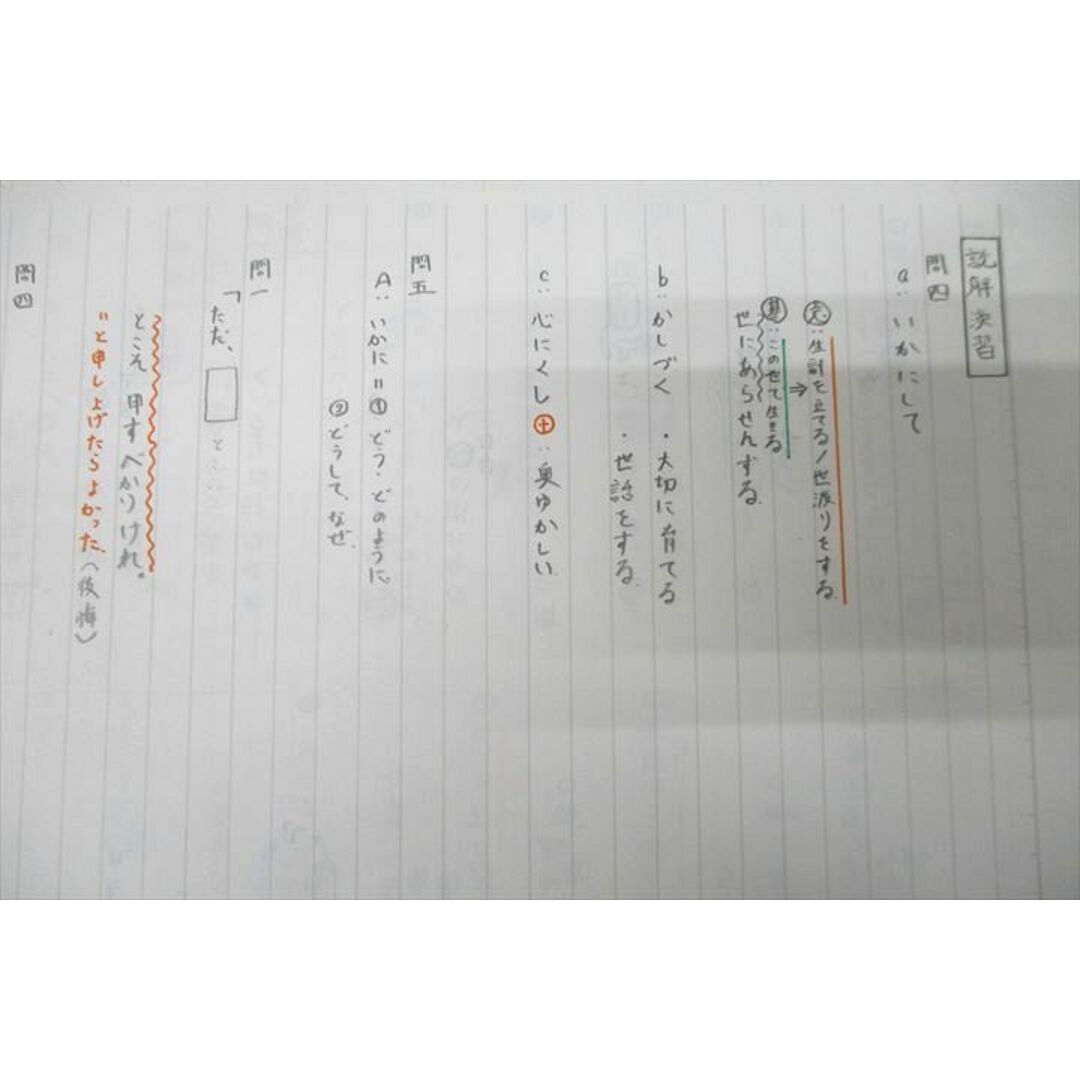 読解演習
問四
a：いかにして
完：生計を立てる/世渡りをする
⇒
基：この世で生きる
世にあらせんずる
b：かしづく ・大切に育てる
・世話をする
c：心にくし＋：奥ゆかしい
問五
A：いかに＝①どう・どのように
②どうして、なぜ
問一
「ただ、
とこそ申すべかりけれ。
"と申し上げたらよかった（後悔）
問四